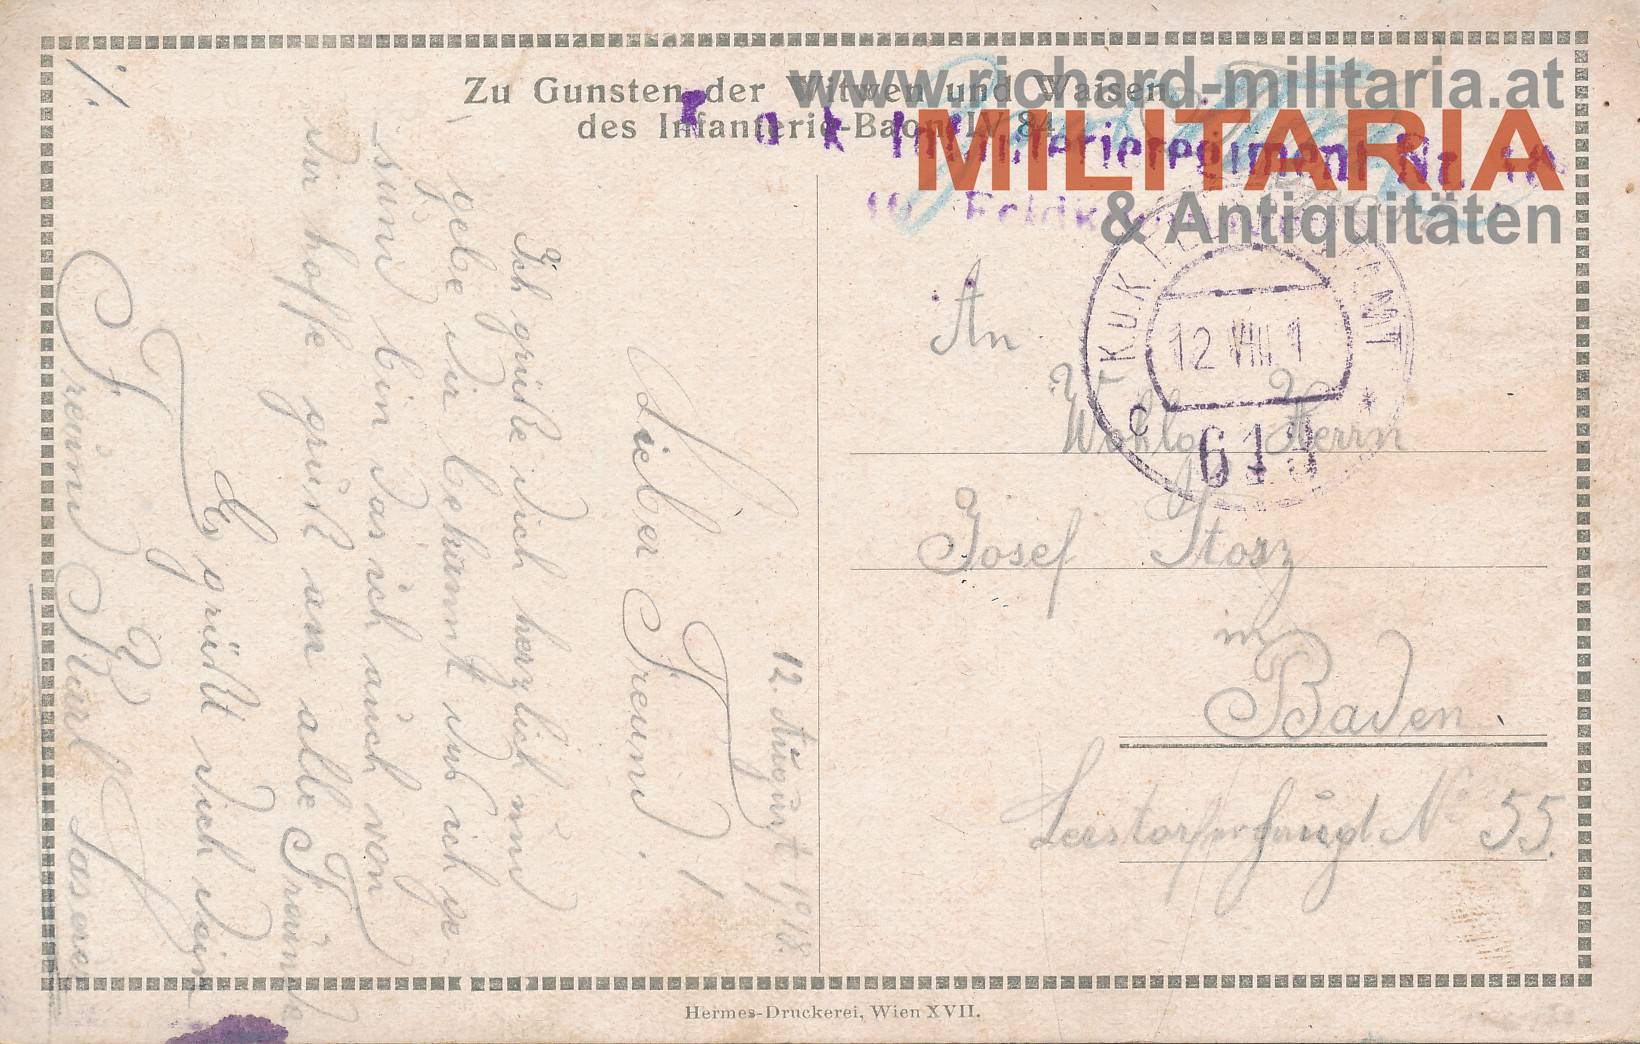 Zu Gunsten der Witwen und Waisen
des Infanterie-Baon IV/84.
www.richard-militaria.at
MILITARIA
& Antiquitäten
K u k Infanterieregiment Nr.
K.u.K.
12 VIII 1
613
1/.
12. August 1918.
Lieber Freund!
Ich grüße dich herzlich und
gebe dir bekannt das ich ge-
sund bin das ich auch von
dir hoffe grüße an alle Freunde
Es grüßt dich dein
Freund Karl
An
Wohlg Herrn
Josef Storz
in
Baden.
No 55.
Hermes-Druckerei, Wien XVII.